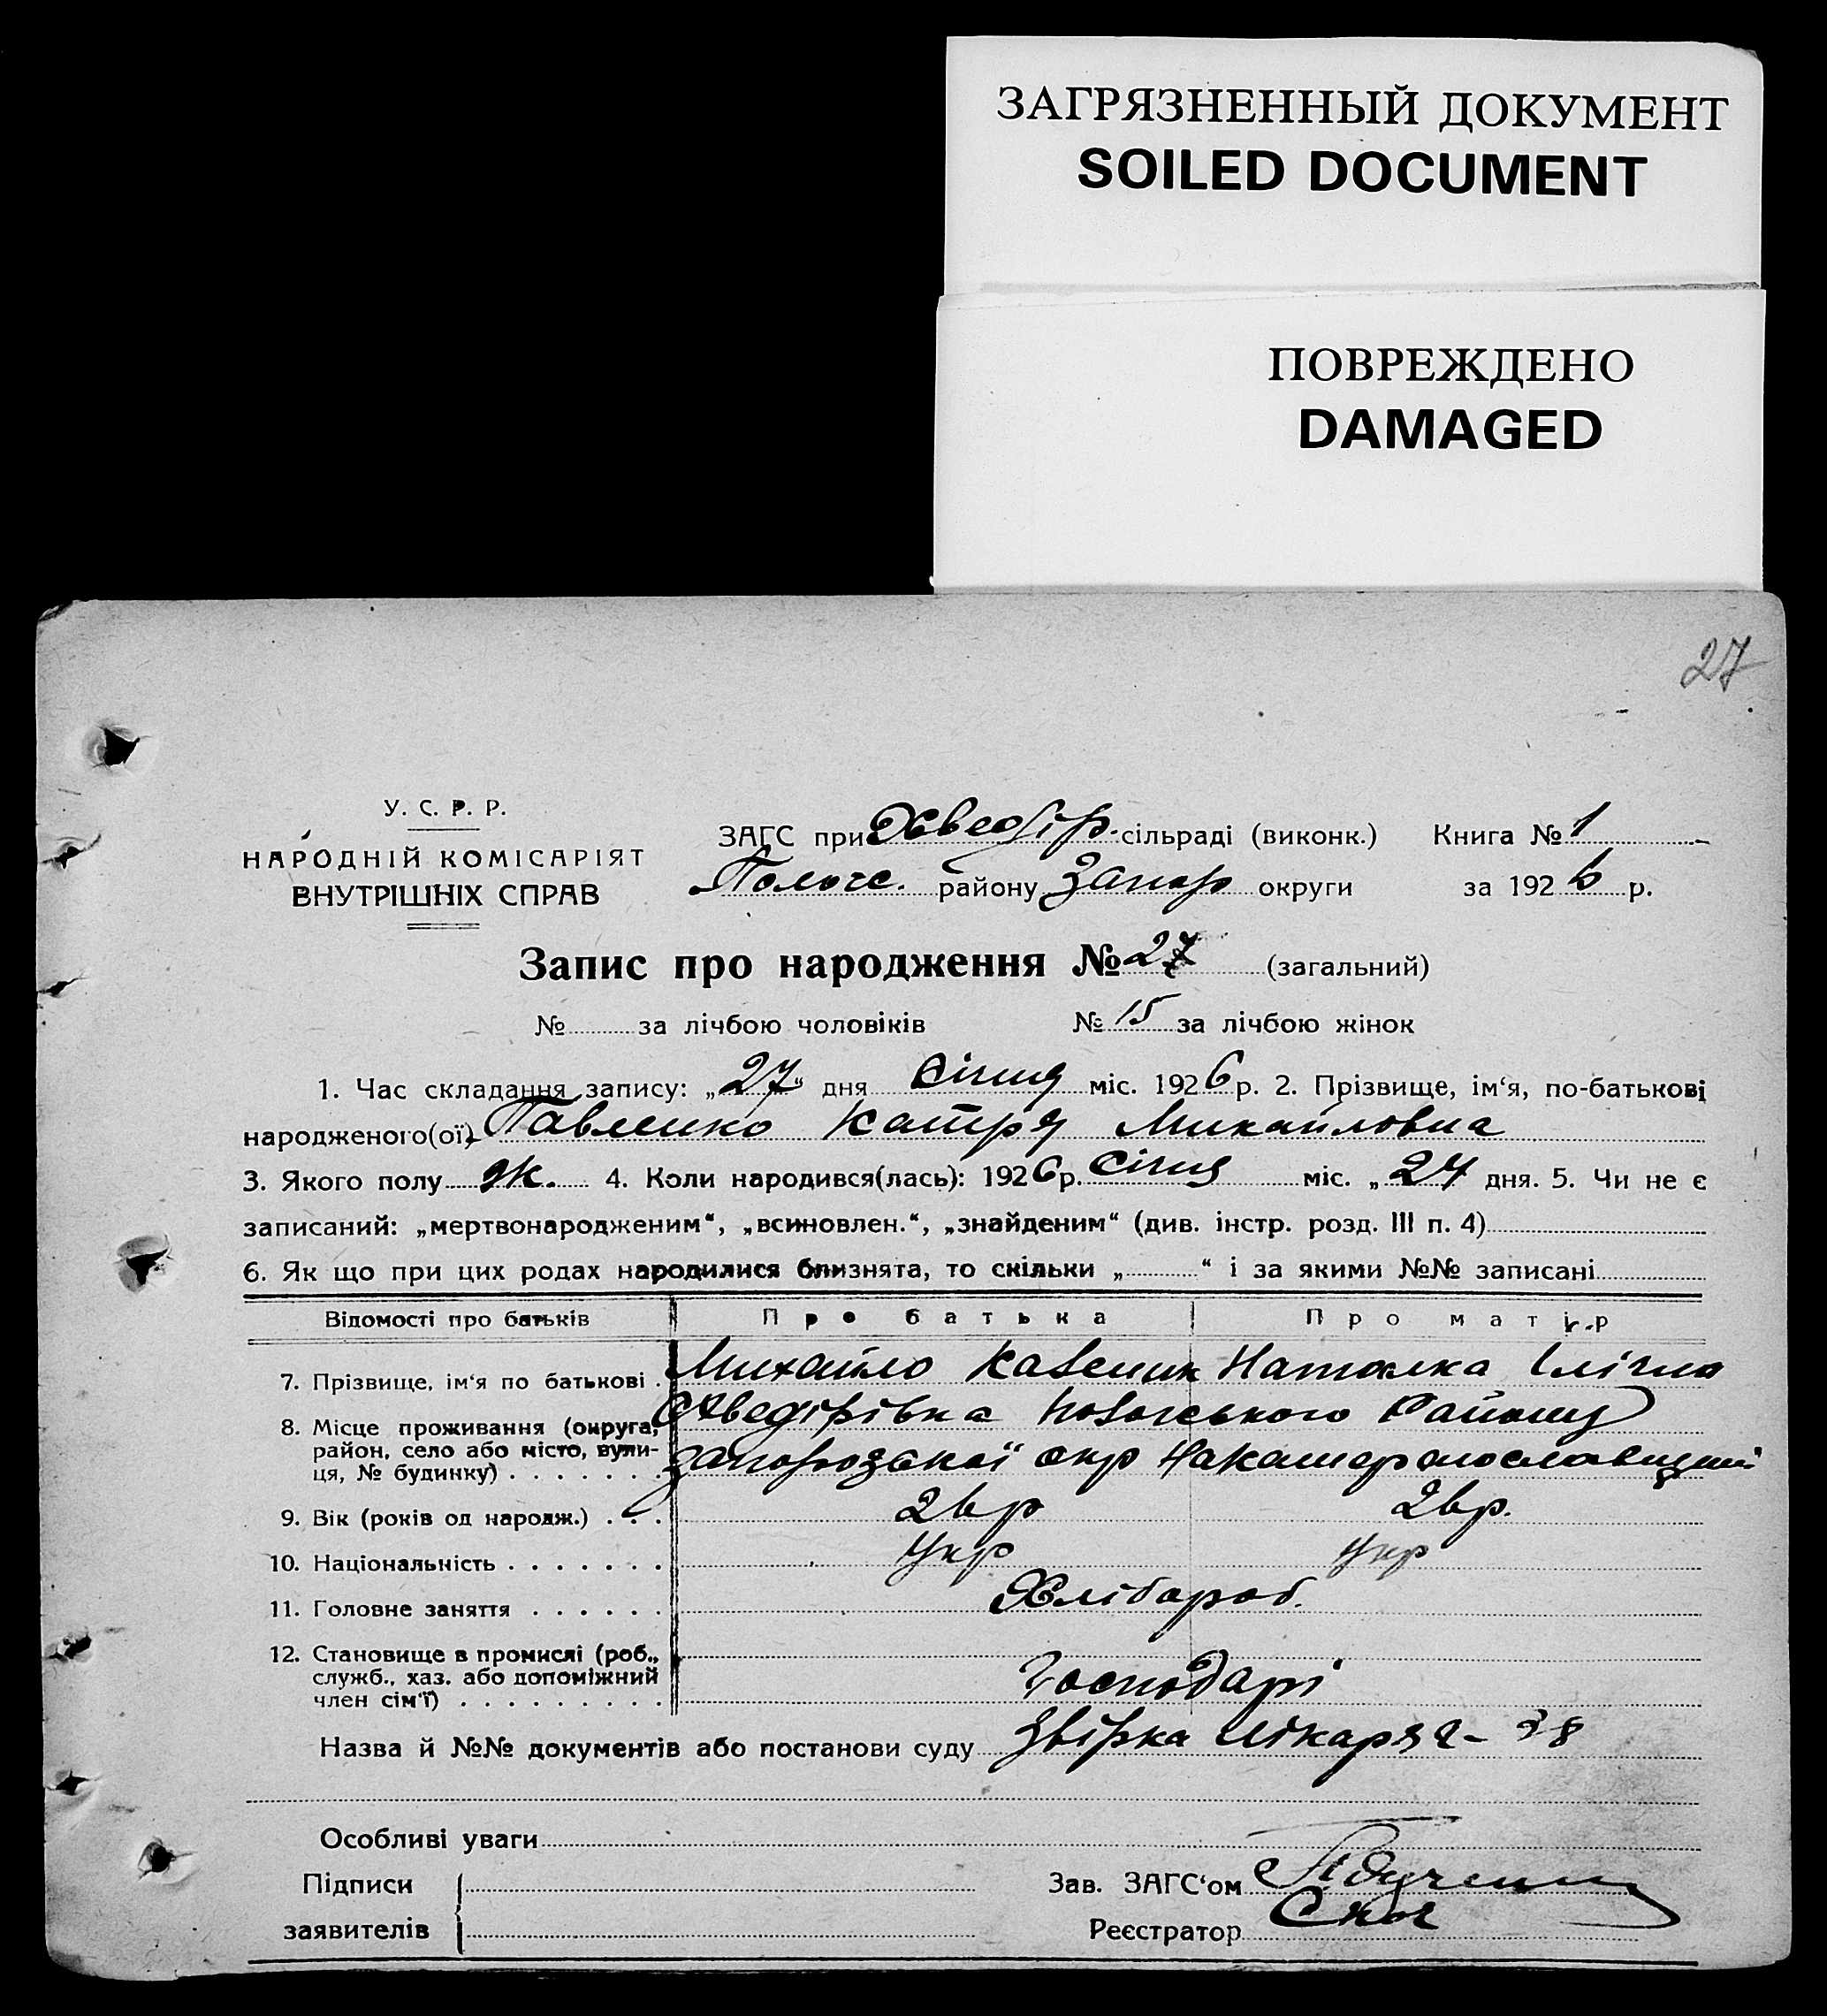 ЗАГРЯЗНЕННЫЙ ДОКУМЕНТ
SOILED DOCUMENT
ПОВРЕЖДЕНО
DAMAGED
27
У. С. Р. Р.
НАРОДНІЙ КОМІСАРІЯТ
ВНУТРІШНІХ СПРАВ
ЗАГС при Хведір. сільраді (виконк.) Книга № 1
Пологс. району Запор округи за 1926 р.
Запис про народження № 27 (загальний)
№ за лічбою чоловіків № 15 за лічбою жінок
1. Час складання запису: „27" дня Січня міс. 1926 р. 2. Прізвище, ім‘я, по-батькові
народженого(ої) Павленко Катря Михайловна
3. Якого полу ж. 4. Коли народився(лась): 1926 р. Січня міс. „ 24 дня. 5. Чи не є
записаний: „мертвонародженим“, „всиновлен.“, „знайденим“ (див. інстр. розд. III п. 4)
6. Як що при цих родах народилися близнята, то скільки „ “ і за якими №№ записані
Відомості про батьків Про батька Про матір
7. Прізвище, ім‘я по батькові Михайло Наталка Ілічна
8. Місце проживання (округа, район, село або місто, вулиця, № будинку) Хведірівка Района
Запорозької окр
9. Вік (років од народж.) 26 р 26 р.
10. Національність Укр Укр
11. Головне заняття Хлібороб.
12. Становище в промислі (роб., служб., хаз. або допоміжний член сім‘ї) Господарі
Назва й №№ документів або постанови суду Звірка лікаря
Особливі уваги
Підписи
заявителів
Зав. ЗАГС‘ом
Реєстратор